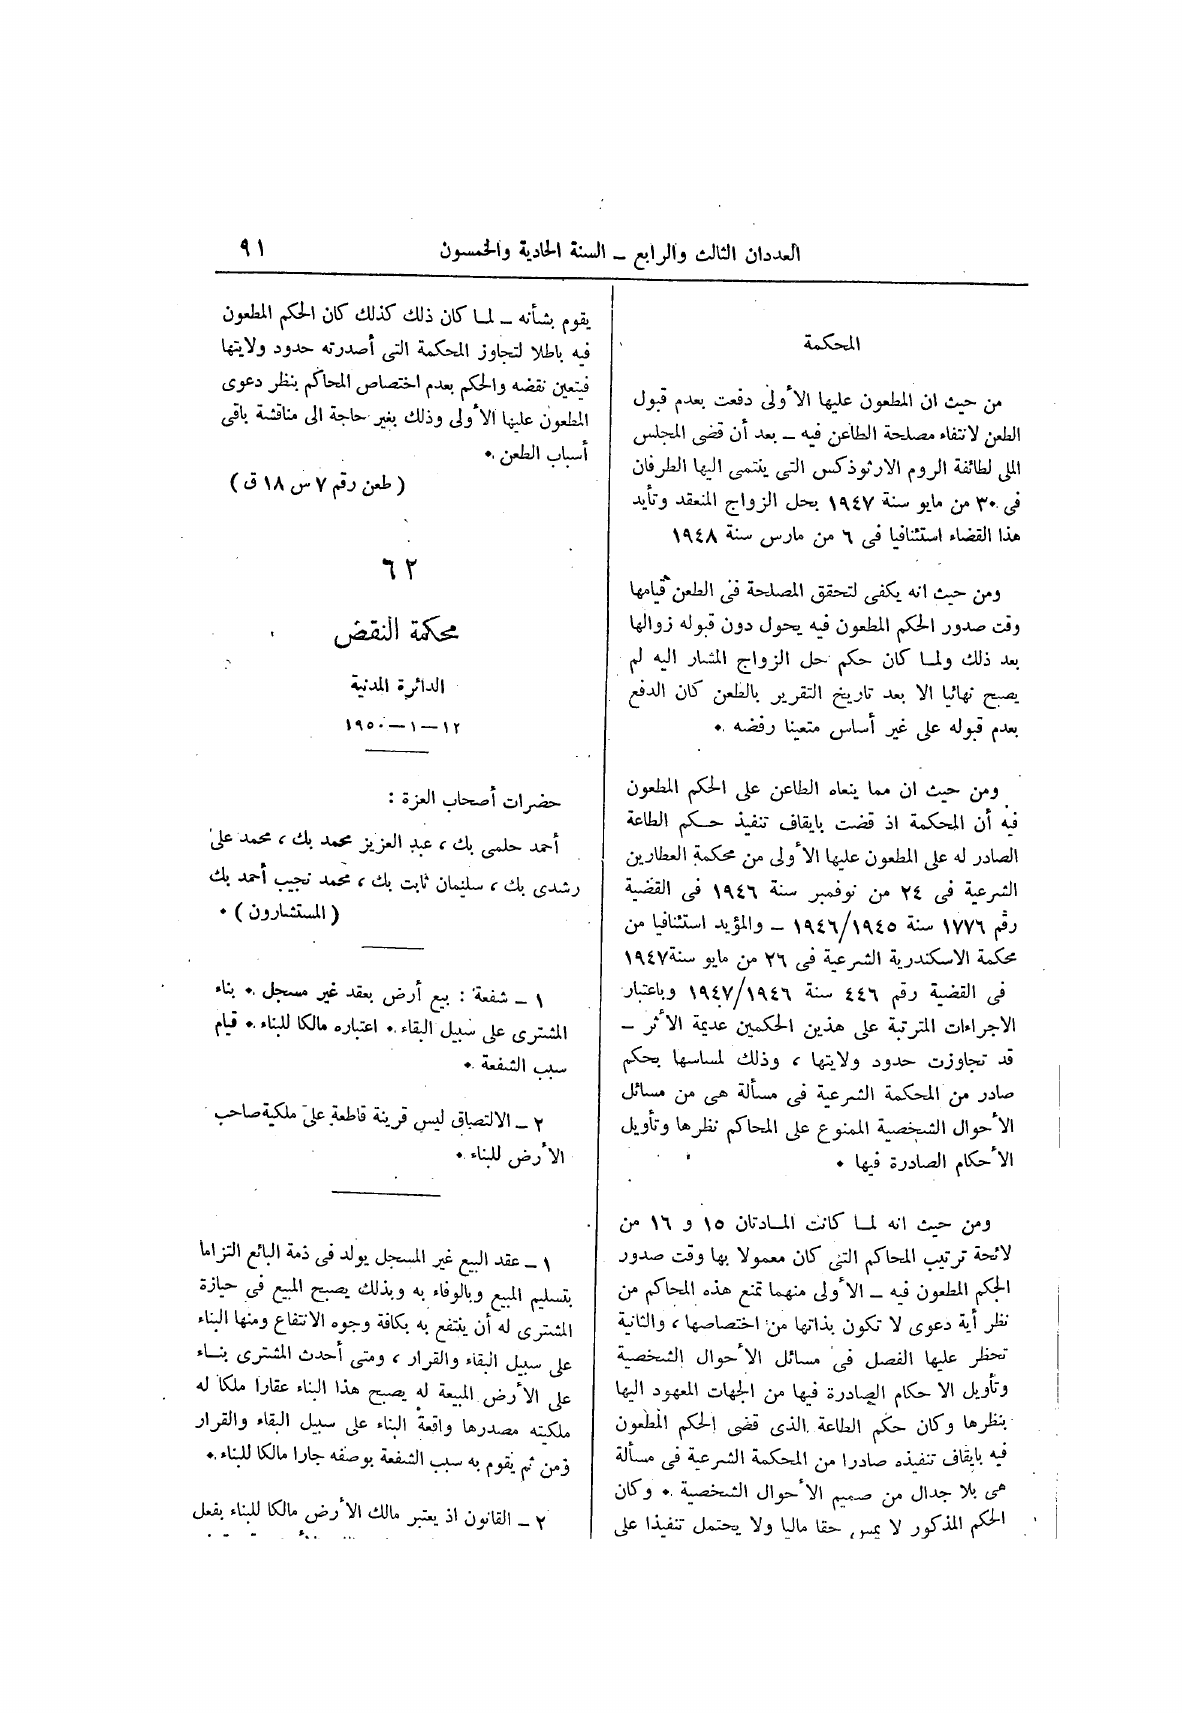 العددان الثالث والرابع – السنة الحادية والخمسون
٩١
المحكمة
من حيث ان المطعون عليها الأولى دفعت بعدم قبول
الطعن لانتفاء مصلحة الطاعن فيه – بعد أن قضى المجلس
الملى لطائفة الروم الارثوذكس التى ينتمى اليها الطرفان
فى ٣٠ من مايو سنة ١٩٤٧ بحل الزواج المنعقد وتأيد
هذا القضاء استئنافيا فى ٦ من مارس سنة ١٩٤٨
ومن حيث انه يكفى لتحقق المصلحة فى الطعن قيامها
وقت صدور الحكم المطعون فيه يحول دون قبوله زوالها
بعد ذلك ولما كان حكم حل الزواج المشار اليه لم
يصبح نهائيا الا بعد تاريخ التقرير بالطعن كان الدفع
بعدم قبوله على غير أساس متعينا رفضه .
ومن حيث ان مما ينعاه الطاعن على الحكم المطعون
فيه أن المحكمة اذ قضت بايقاف تنفيذ حكم الطاعة
الصادر له على المطعون عليها الأولى من محكمة العطارين
الشرعية فى ٢٤ من نوفمبر سنة ١٩٤٦ فى القضية
رقم ١٧٧٦ سنة ١٩٤٦/١٩٤٥ – والمؤيد استئنافيا من
محكمة الاسكندرية الشرعية فى ٢٦ من مايو سنة ١٩٤٧
فى القضية رقم ٤٤٦ سنة ١٩٤٧/١٩٤٦ وباعتبار
الاجراءات المترتبة على هذين الحكمين عديمة الأثر –
قد تجاوزت حدود ولايتها ، وذلك لمساسها بحكم
صادر من المحكمة الشرعية فى مسألة هى من مسائل
الأحوال الشخصية الممنوع على المحاكم نظرها وتأويل
الأحكام الصادرة فيها .
ومن حيث انه لما كانت المادتان ١٥ و ١٦ من
لائحة ترتيب المحاكم التى كان معمولا بها وقت صدور
الحكم المطعون فيه – الأولى منهما تمنع هذه المحاكم من
نظر أية دعوى لا تكون بذاتها من اختصاصها ، والثانية
تحظر عليها الفصل فى مسائل الأحوال الشخصية
وتأويل الاحكام الصادرة فيها من الجهات المعهود اليها
بنظرها وكان حكم الطاعة الذى قضى الحكم المطعون
فيه بايقاف تنفيذه صادرا من المحكمة الشرعية فى مسألة
هى بلا جدال من صميم الأحوال الشخصية . وكان
الحكم المذكور لا يمس حقا ماليا ولا يحتمل تنفيذا على
يقوم بشأنه – لما كان ذلك كذلك كان الحكم المطعون
فيه باطلا لتجاوز المحكمة التى أصدرته حدود ولايتها
فيتعين نقضه والحكم بعدم اختصاص المحاكم بنظر دعوى
المطعون عليها الأولى وذلك بغير حاجة الى مناقشة باقى
أسباب الطعن .
( طعن رقم ٧ س ١٨ ق )
٦٢
محكمة النقض
الدائرة المدنية
١٢ – ١ – ١٩٥٠
حضرات أصحاب العزة :
أحمد حلمى بك ، عبد العزيز محمد بك ، محمد على
رشدى بك ، سليمان ثابت بك ، محمد نجيب أحمد بك
( المستشارون ) .
١ – شفعة : بيع أرض بعقد غير مسجل . بناء
المشترى على سبيل البقاء . اعتباره مالكا للبناء . قيام
سبب الشفعة .
٢ – الالتصاق ليس قرينة قاطعة على ملكية صاحب
الأرض للبناء .
١ – عقد البيع غير المسجل يولد فى ذمة البائع التزاما
بتسليم المبيع وبالوفاء به وبذلك يصبح المبيع فى حيازة
المشترى له أن ينتفع به بكافة وجوه الانتفاع ومنها البناء
على سبيل البقاء والقرار ، ومتى أحدث المشترى بناء
على الأرض المبيعة له يصبح هذا البناء عقارا ملكا له
ملكيته مصدرها واقعة البناء على سبيل البقاء والقرار
ومن ثم يقوم به سبب الشفعة بوصفه جارا مالكا للبناء .
٢ – القانون اذ يعتبر مالك الأرض مالكا للبناء بفعل